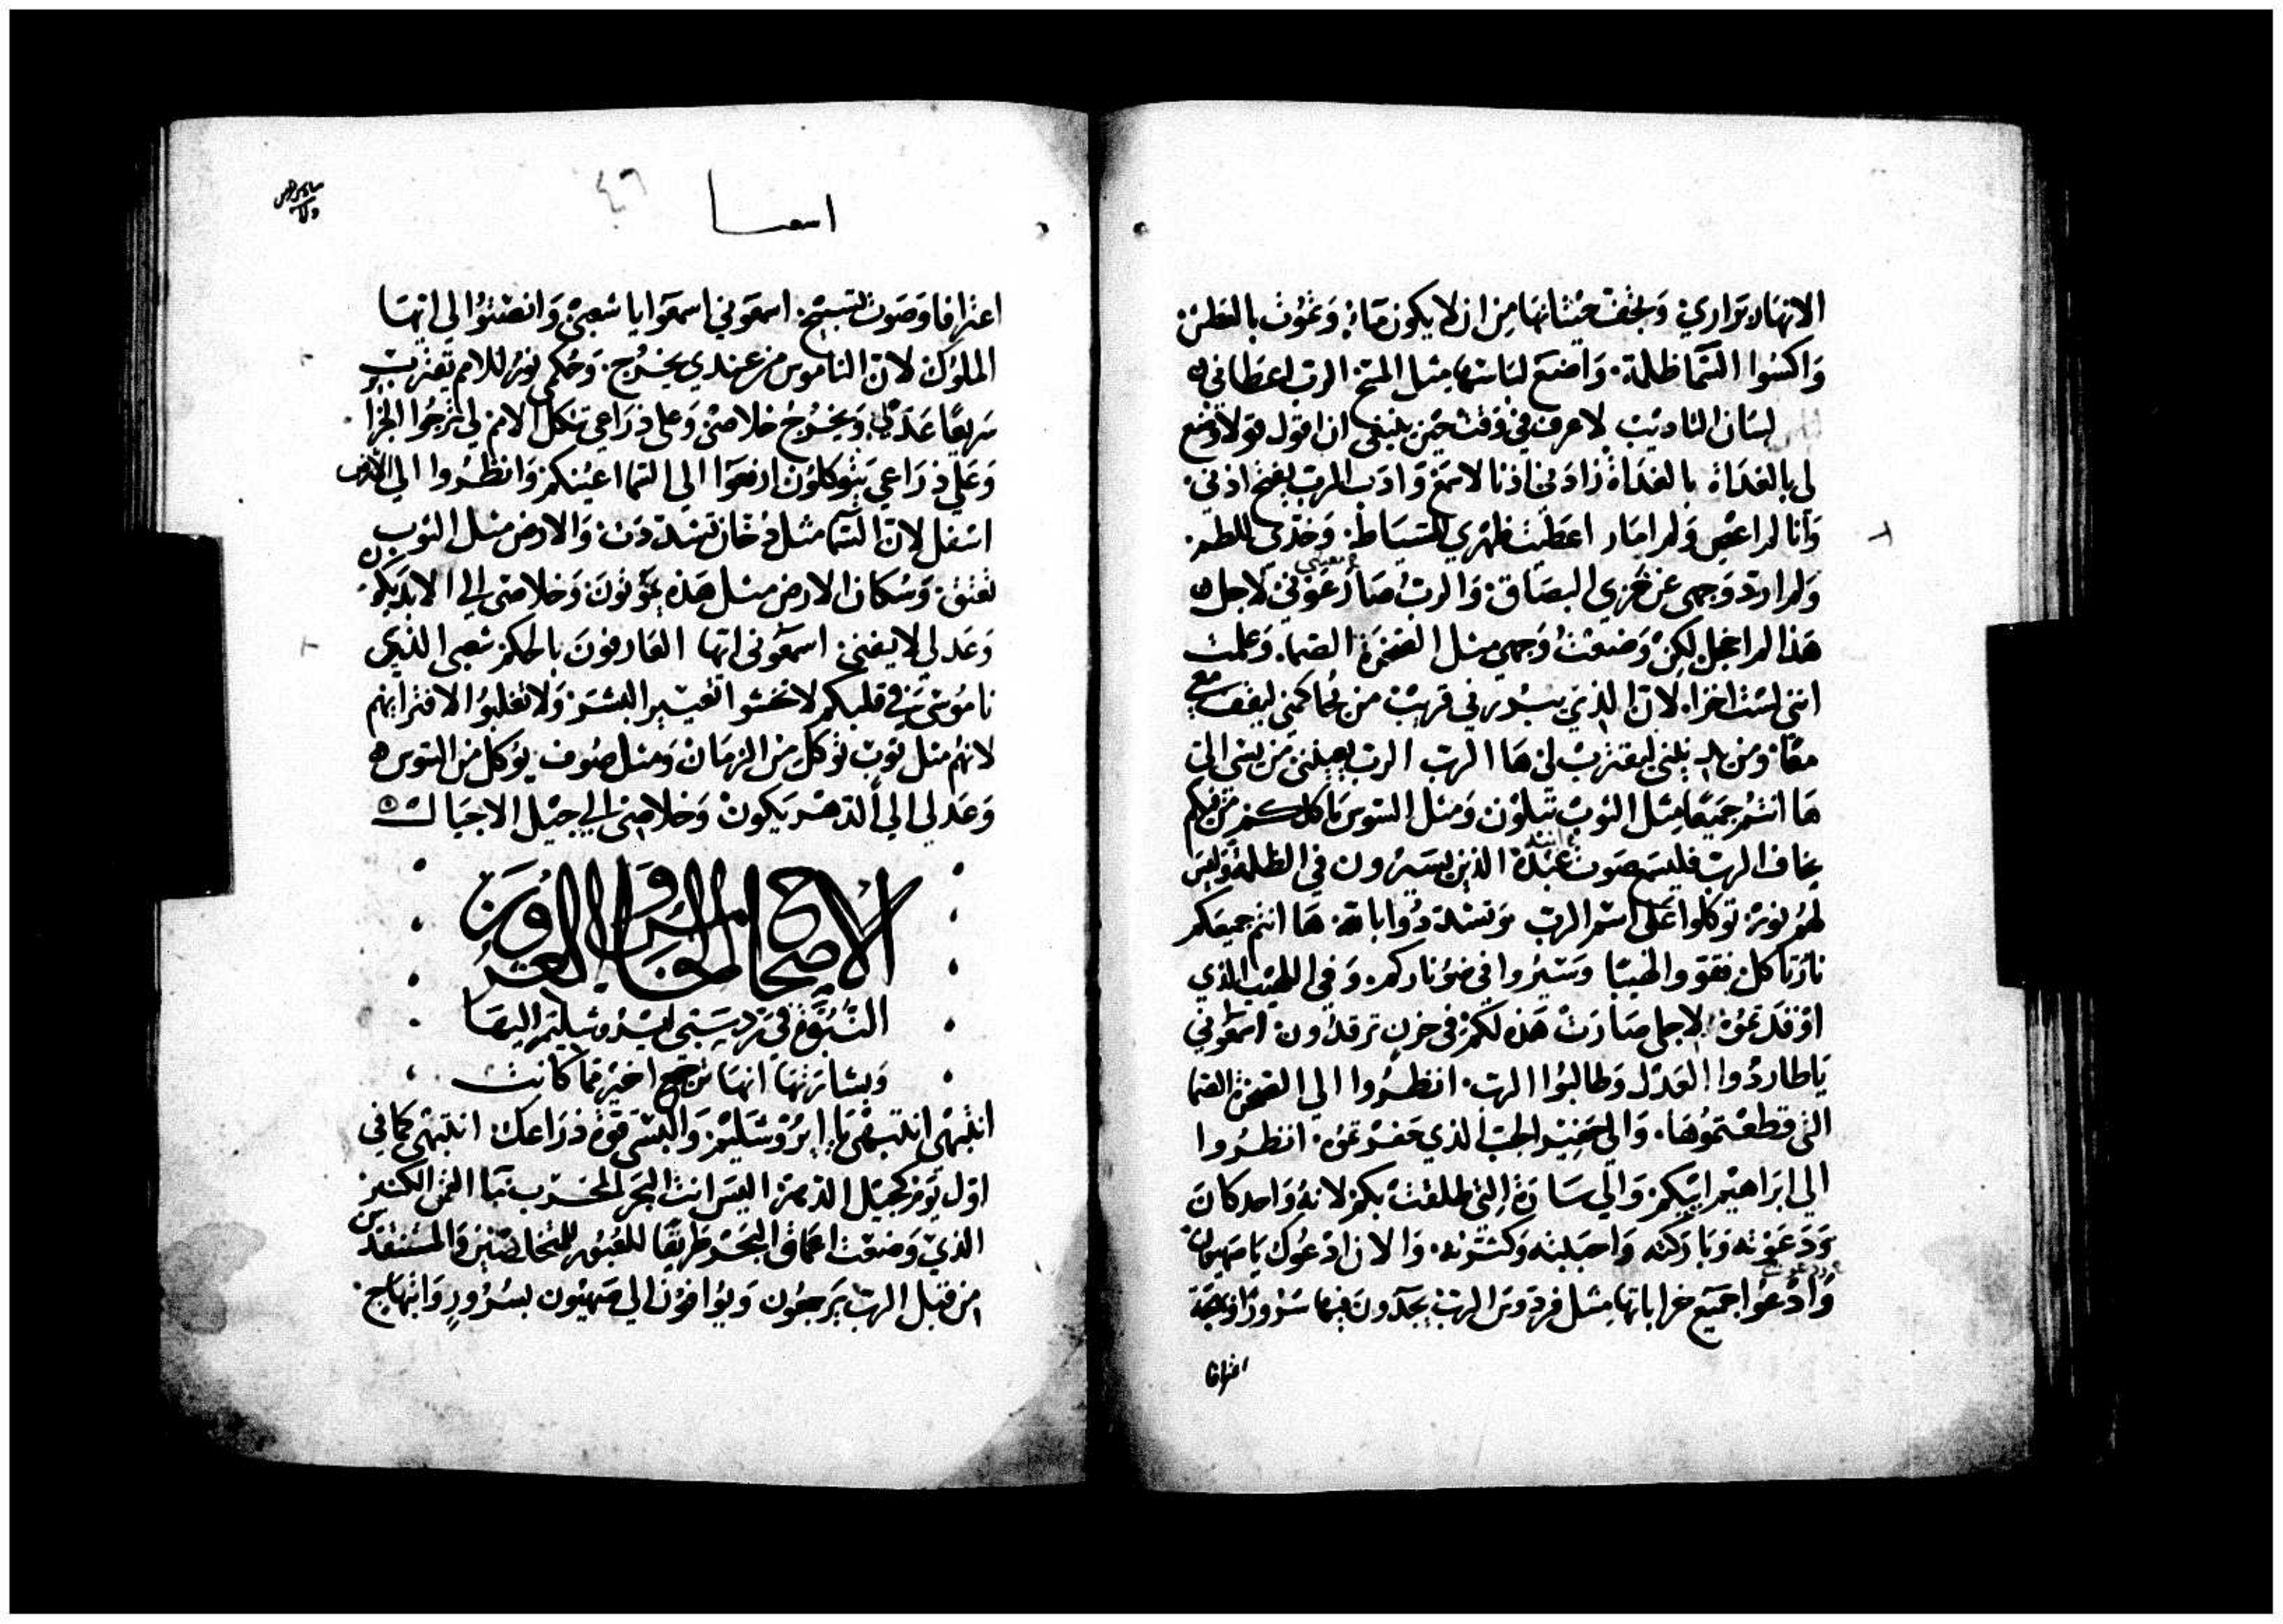 الانهار براري وتجف حيتانها من ان لا يكون ماء وتموت بالعطش
واكسوا السما ظلمة واضع لباسها مثل المسح الرب اعطاني
لسان التاديب لاعرف في وقت حين ينبغي ان اقول قولا وضع
لي بالغداة بالغداة زادني اذنا لاسمع وادب الرب يفتح اذني
وانا لم اعص ولم امار اعطيت ظهري للسياط وخدي للطم
ولم ارد وجهي عن خزي البصاق والرب صار عوني لاجل
معيني
هذا لم اخجل لكن وضعت وجهي مثل الصخرة الصما وعلمت
انني لست اخزا لان الذي يبررني قريب من يحاكمني ليقف معي
معا ومن يلني ليقترب لي ها الرب الرب يعينني من يسى الي
ها انتم جميعا مثل الثوب تبلون ومثل السوس ياكلكم من فيكم
يخاف الرب فليسمع صوت عبده الذين يسيرون في الظلمة وليس
لهم نور توكلوا على اسم الرب وتسندوا بالله ها انتم جميعكم
نارًا كل تقد والهيبا وسيروا في ضو ناركم وفي اللهيب الذي
اوقدتموه لاجلي صارت هذه لكم في حزن ترقدون اسمعوني
يا طاردوا العدل وطالبوا الرب انظروا الي الصخرة الصما
التي قطعتموها والى حفير الجب الذي حفرتموه انظروا
الي ابراهيم ابيكم والي سارة التي طلقت بكم لانه واحد كان
ودعوته وباركته واحببته وكثرته والان ادعوك يا صهيون
وادعوا جميع خراباتها مثل فردوس الرب يجدون فيها سرورا وبهجة
اعترافا
اسعيا
٤٦
اعترافا وصوت تسبيح اسمعوني اسمعوا يا شعبي وانصتوا لي ايها
الملوك لان الناموس من عندي يخرج وحكمي نور للامم يقترب
سريعا عدلي ويخرج خلاصي وعلى ذراعي تتكل الامم لي ترجوا الجزا
وعلي ذراعي يتوكلون ارفعوا الى السما اعينكم وانظروا الي الارض
اسفل لان السما مثل دخان تشددت والارض مثل الثوب
تعتق وسكان الارض مثل هذه يموتون وخلاصي الي الابد يكون
وعدلي لا يفنى اسمعوني ايها العارفون بالحكم شعبي الذي
ناموسي في قلبكم لا تخشوا تعيير البشر ولا تغلبوا لافترايهم
لانهم مثل ثوب توكل من الزمان ومثل صوف يوكل من السوس
وعدلي الي الدهر يكون وخلاصي الي جيل الاجيال
الاصحاح الحادي والعشرون
النبوة في ترديس بني ايروشليم اليها
وبشارتها انها ترجع اخير مما كانت
انتبهي انتبهي يا ايروشليم والبسي قوة ذراعك انتبهي كما في
اول يوم كجيل الدهر اليس انت البحر المخرب ما الغمر الكثير
الذي وضعت اعماق البحر طريقا للعبور للمتخلصين والمستنقذين
من قبل الرب يرجعون ويوافون الي صهيون بسرور وابتهاج